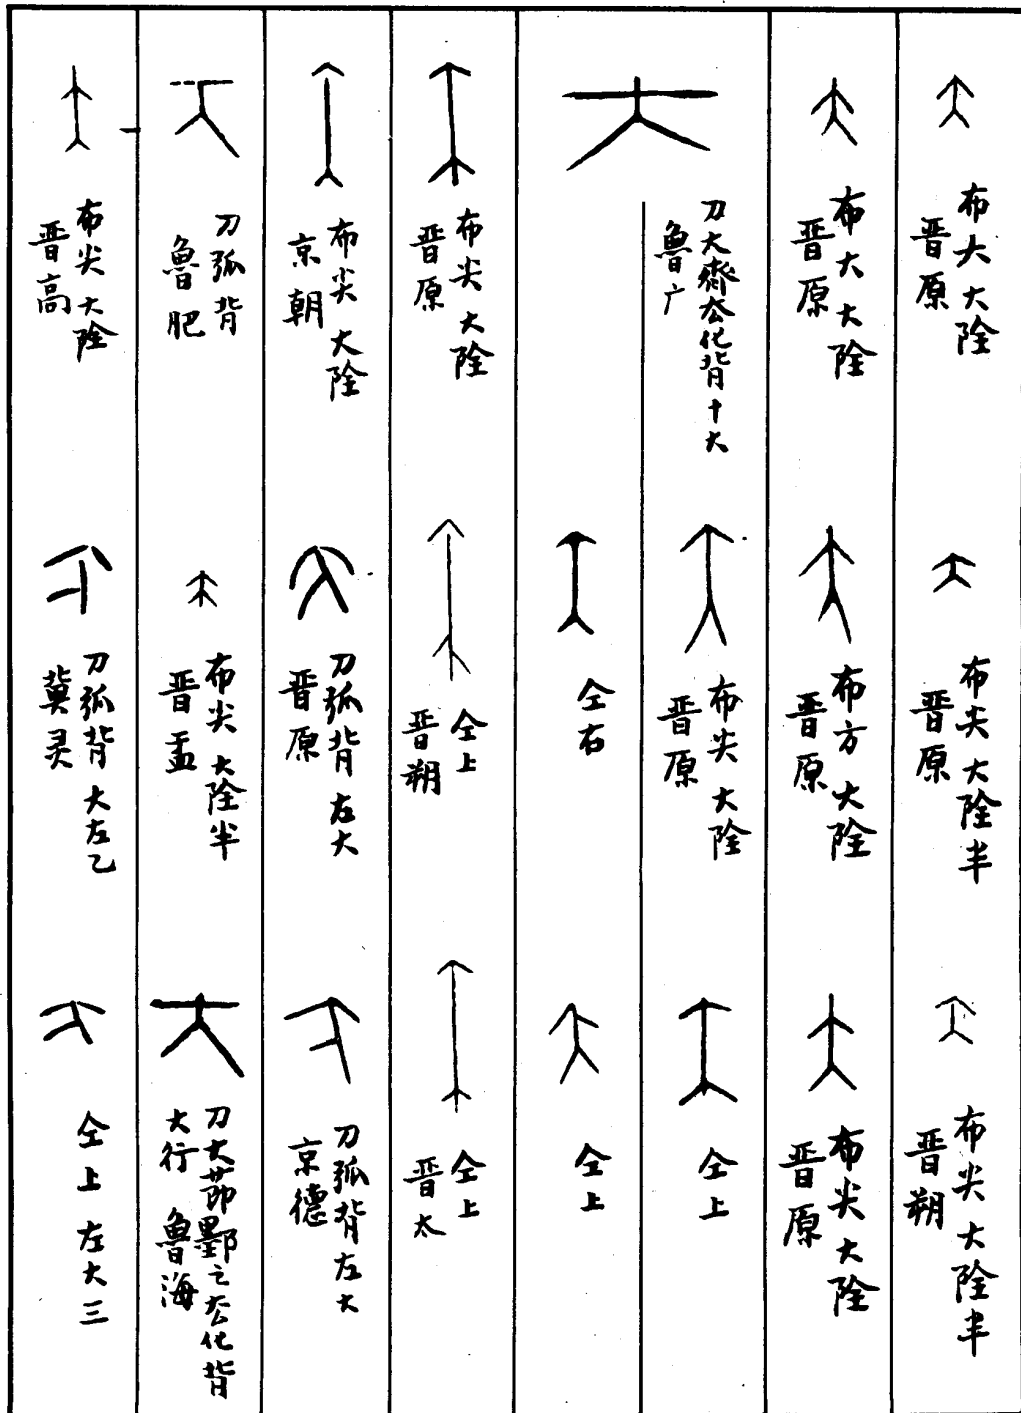 布大大陰
晋原
布尖大陰半
晋原
布尖大陰半
晋朔
布大大陰
晋原
布方大陰
晋原
布尖大陰
晋原
刀大齊厺化背十大
魯广
布尖大陰
晋原
仝上
仝右
仝上
布尖大陰
晋原
仝上
晋朔
仝上
晋太
布尖大陰
京朝
刀弧背左大
晋原
刀弧背左大
京德
刀弧背
魯肥
布尖大陰半
晋盂
刀大節墨之厺化背
大行 魯海
布尖大陰
晋高
刀弧背大左乙
冀灵
仝上左大三